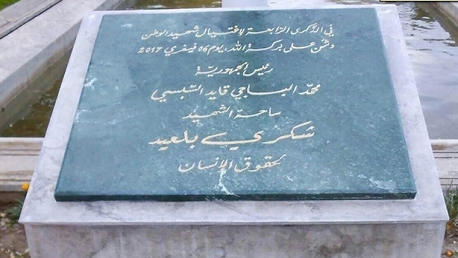 في الذكرى الرابعة لاغتيال شهيد الوطن
دشن على بركة الله، يوم 06 فيفري 2017
رئيس الجمهورية
محمد الباجي قايد السبسي
ساحة الشهيد
شكري بلعيد
لحقوق الإنسان